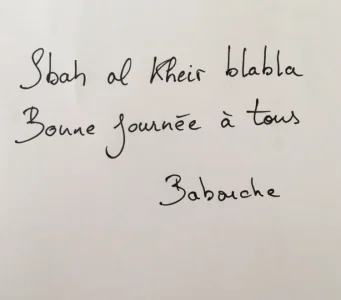 Sbah al Kheir blabla
Bonne journée à tous
Babouche